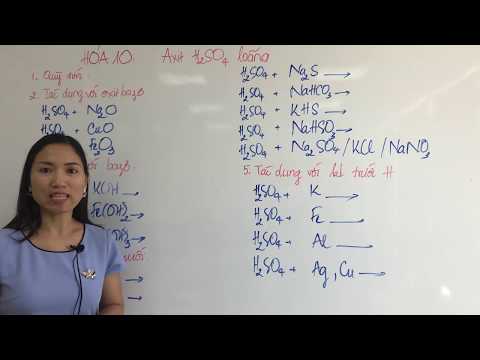 HÓA 10: Axit H₂SO₄ loãng
1. Quỳ tím.
2. Tác dụng với oxit bazơ
H₂SO₄ + Na₂O
H₂SO₄ + CuO
Fe₂O₃
với bazơ
KOH →
Fe(OH)₂ →
)₃ →
muối
H₂SO₄ + Na₂S →
H₂SO₄ + NaHCO₃ →
H₂SO₄ + KHS →
H₂SO₄ + NaHSO₃ →
H₂SO₄ + Na₂SO₄ / KCl / NaNO₃
5. Tác dụng với kl trước H
H₂SO₄ + K →
H₂SO₄ + Fe →
H₂SO₄ + Al →
H₂SO₄ + Ag, Cu →